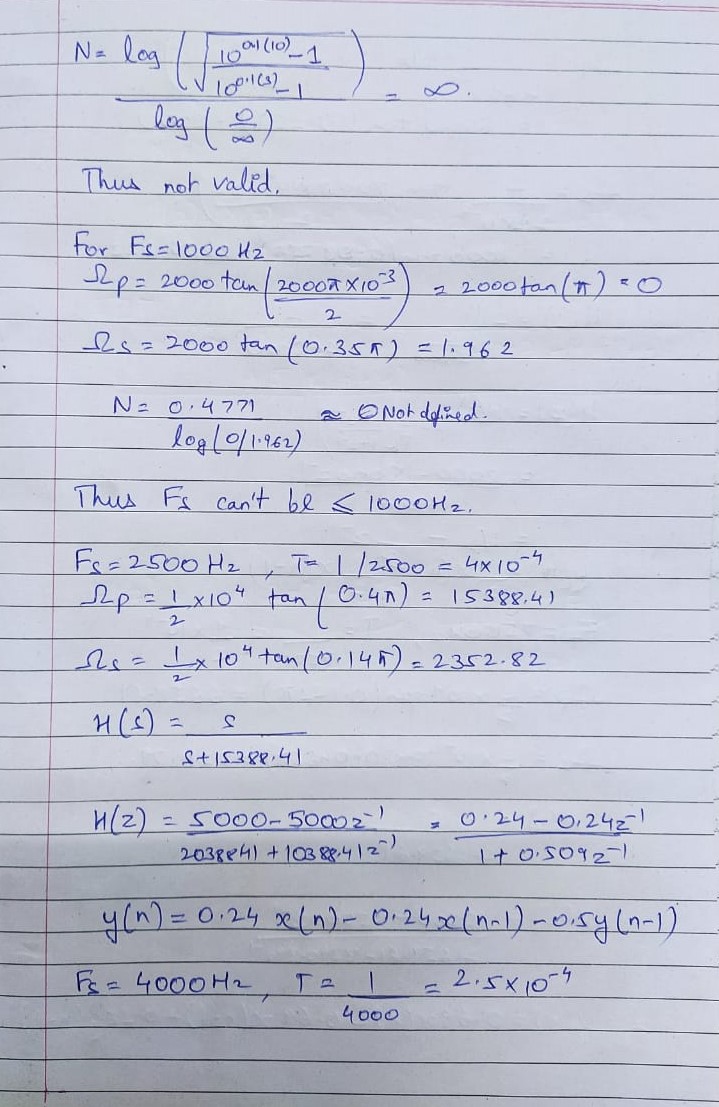 N = log ( √ 10^0.1(10) - 1 / 10^0.1(3) - 1 ) / log ( 0 / ∞ ) = ∞.
Thus not valid.
For Fs = 1000 Hz
Ωp = 2000 tan ( 2000π × 10^-3 / 2 ) = 2000 tan (π) = 0
Ωs = 2000 tan (0.35π) = 1.962
N = 0.4771 / log (0/1.962) ≈ 0 Not defined.
Thus Fs can't be ≤ 1000Hz.
Fs = 2500 Hz , T = 1 / 2500 = 4×10^-4
Ωp = 1/2 ×10^4 tan ( 0.4π) = 15388.41
Ωs = 1/2 × 10^4 tan (0.14π) = 2352.82
H(s) = s / s+15388.41
H(z) = 5000 - 5000z^-1 / 20388.41 + 10388.41z^-1 = 0.24 - 0.24z^-1 / 1 + 0.509z^-1
y(n) = 0.24 x(n) - 0.24x(n-1) - 0.5y(n-1)
Fs = 4000Hz , T = 1 / 4000 = 2.5×10^-4